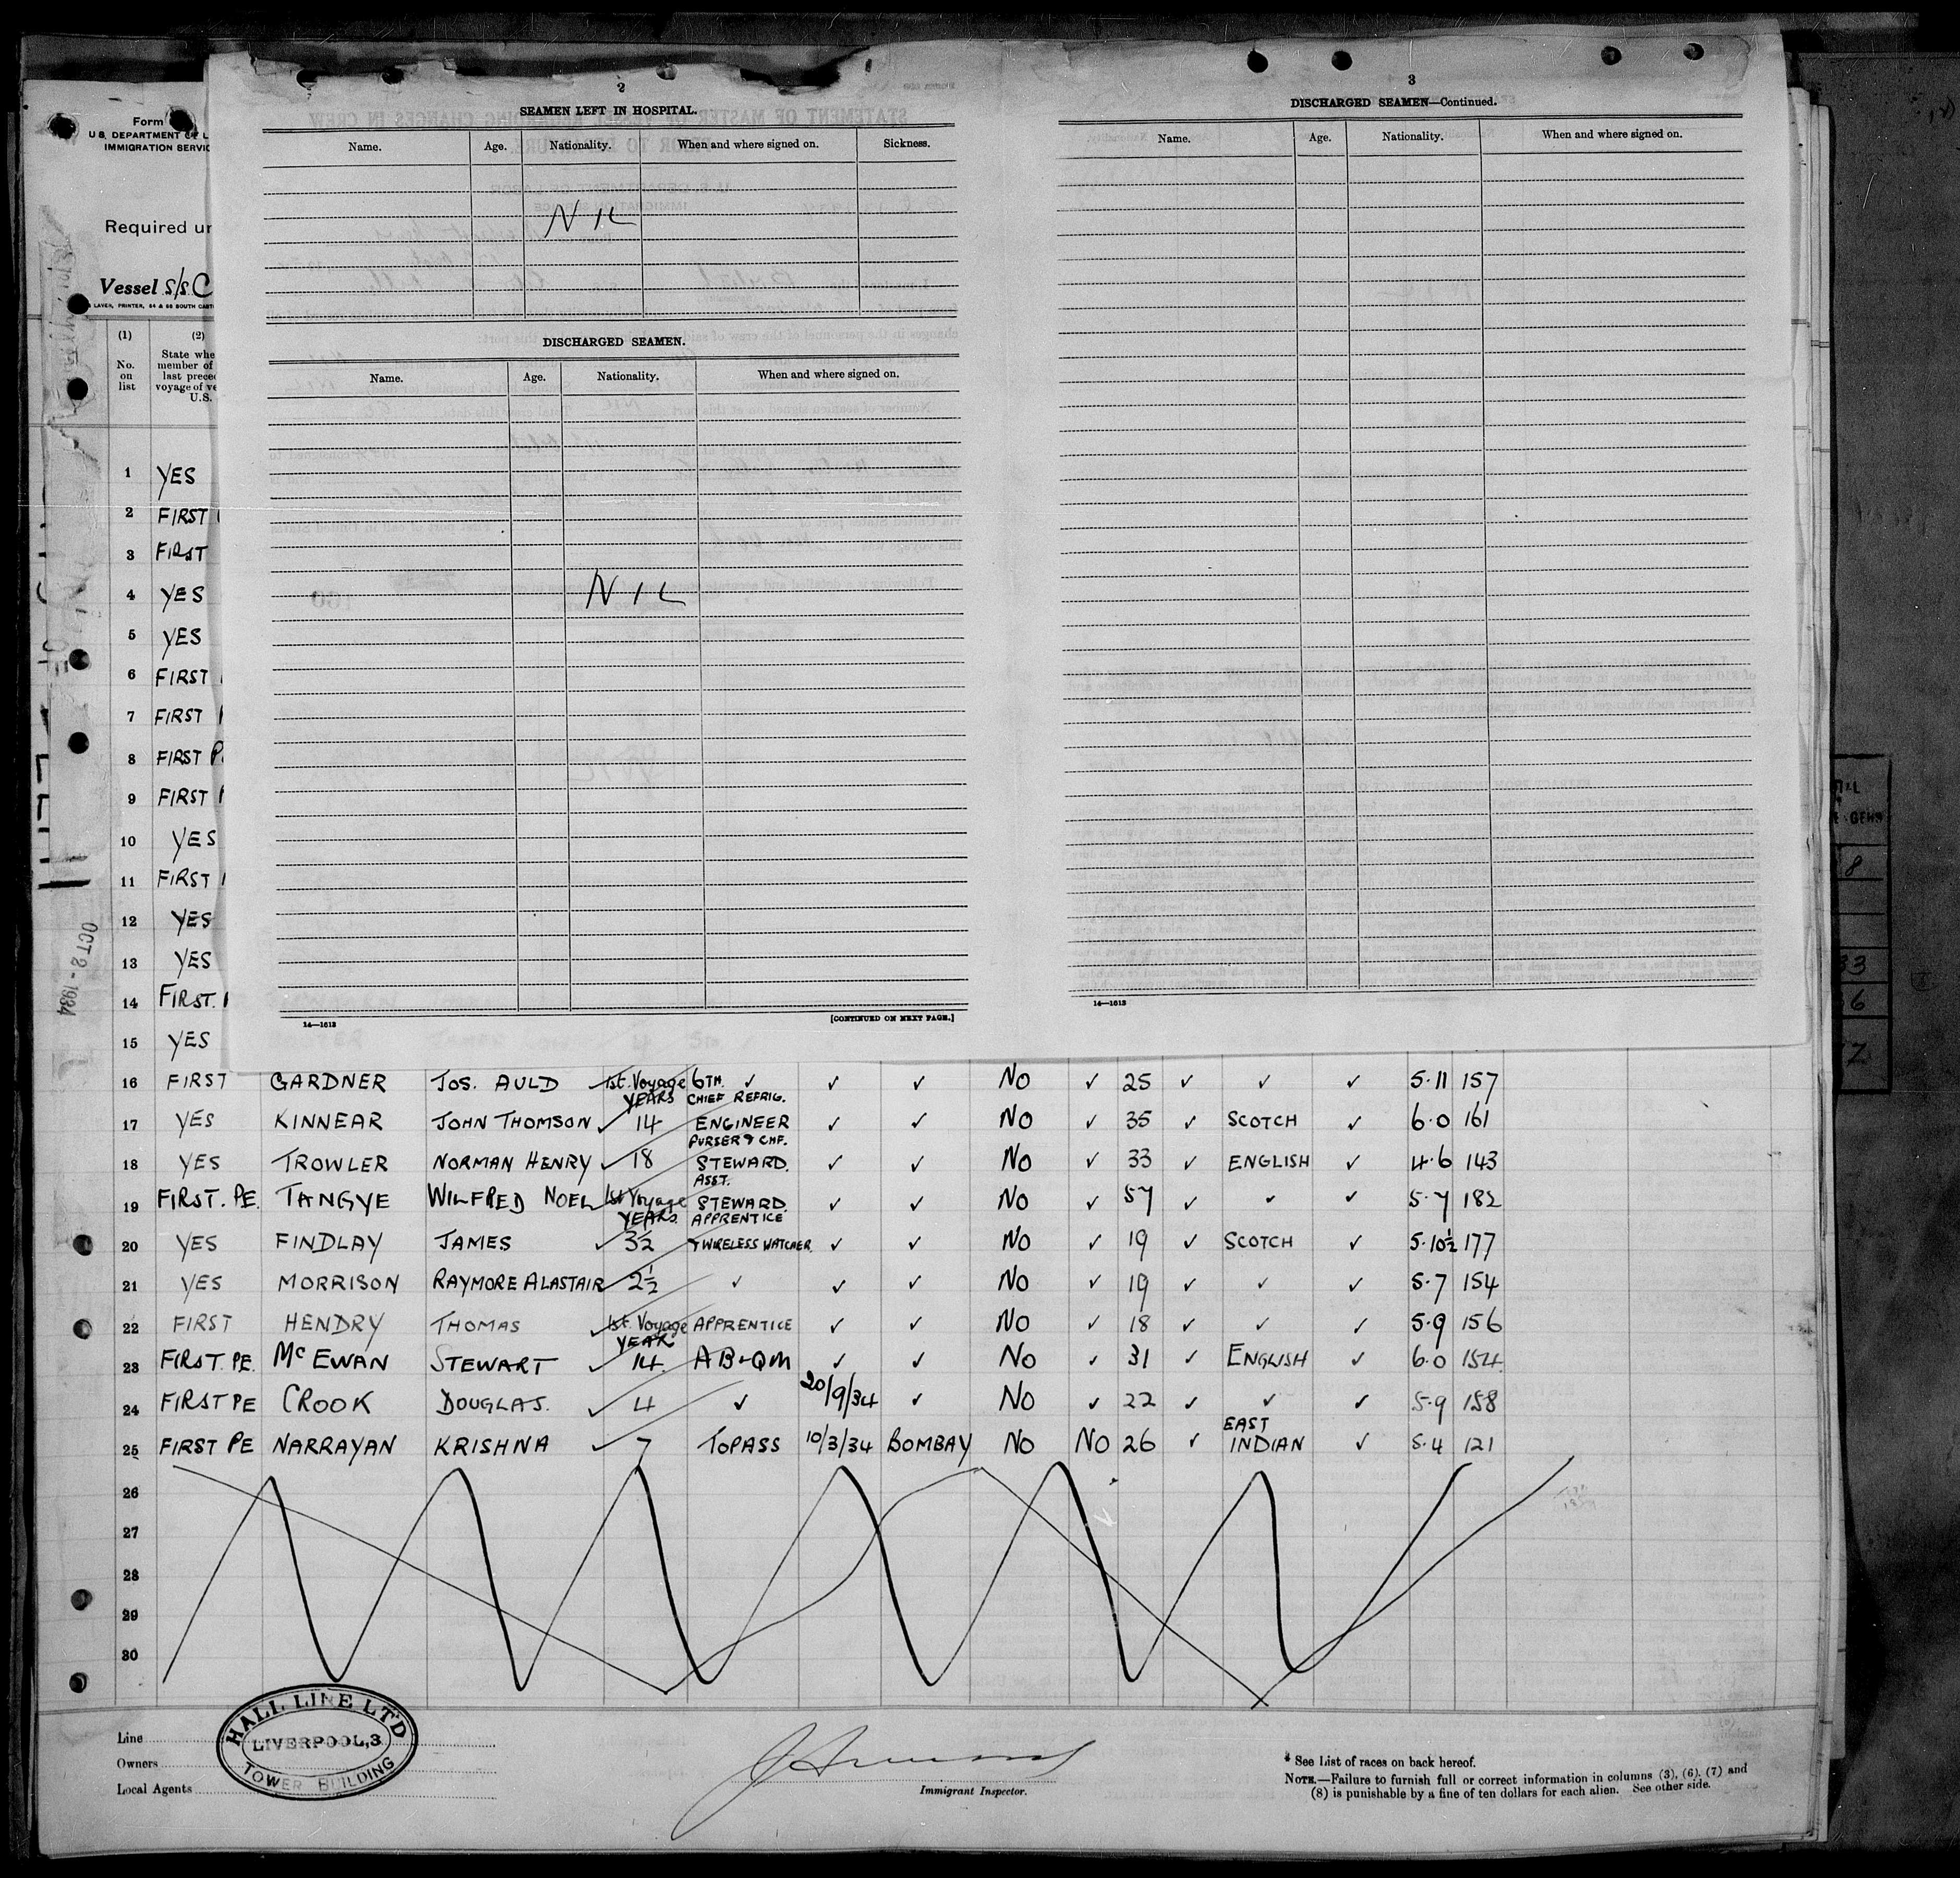 Form
U.S. DEPARTMENT OF L
IMMIGRATION SERVIC
Required un
Vessel S/S C
(1) (2)
No. on list
State whe
member of
last prece
voyage of ve
U.S.
2
SEAMEN LEFT IN HOSPITAL.
Name. Age. Nationality. When and where signed on. Sickness.
NIL
DISCHARGED SEAMEN.
Name. Age. Nationality. When and where signed on.
NIL
14—1613
[CONTINUED ON NEXT PAGE.]
3
DISCHARGED SEAMEN—Continued.
Name. Age. Nationality. When and where signed on.
14—1613
OCT 2 - 1934
1 YES
2 FIRST
3 FIRST
4 YES
5 YES
6 FIRST
7 FIRST
8 FIRST P
9 FIRST
10 YES
11 FIRST
12 YES
13 YES
14 FIRST.
15 YES
16 FIRST GARDNER JOS. AULD 1st. Voyage 6TH. ✓ ✓ ✓ NO ✓ 25 ✓ ✓ ✓ 5.11 157
YEARS CHIEF REFRIG.
17 YES KINNEAR JOHN THOMSON ✓ 14 ENGINEER ✓ ✓ NO ✓ 35 ✓ SCOTCH ✓ 6.0 161
PURSER & CHF.
18 YES TROWLER NORMAN HENRY ✓ 18 STEWARD. ✓ ✓ NO ✓ 33 ✓ ENGLISH ✓ 4.6 143
ASST.
19 FIRST. PE. TANGYE WILFRED NOEL 1st Voyage STEWARD. ✓ ✓ NO ✓ 57 ✓ ✓ ✓ 5.7 182
YEARS. APPRENTICE
20 YES FINDLAY JAMES ✓ 3½ & WIRELESS WATCHER. ✓ ✓ NO ✓ 19 ✓ SCOTCH ✓ 5.10½ 177
21 YES MORRISON RAYMORE ALASTAIR 2½ ✓ ✓ ✓ NO ✓ 19 ✓ ✓ ✓ 5.7 154
22 FIRST HENDRY THOMAS ✓ 1st. Voyage APPRENTICE ✓ ✓ NO ✓ 18 ✓ ✓ ✓ 5.9 156
YEAR
23 FIRST. PE. Mc EWAN STEWART ✓ 14 AB & QM ✓ ✓ NO ✓ 31 ✓ ENGLISH ✓ 6.0 154
24 FIRST PE CROOK DOUGLAS. ✓ 4 ✓ 20/9/34 ✓ NO ✓ 22 ✓ ✓ ✓ 5.9 158
25 FIRST PE NARRAYAN KRISHNA ✓ 7 TOPASS 10/3/34 BOMBAY NO NO 26 ✓ EAST INDIAN ✓ 5.4 121
26
27
28
29
30
Line
Owners
Local Agents
HALL LINE LTD
LIVERPOOL,3
TOWER BUILDING
Immigrant Inspector.
* See List of races on back hereof.
NOTE.—Failure to furnish full or correct information in columns (3), (6), (7) and
(8) is punishable by a fine of ten dollars for each alien. See other side.